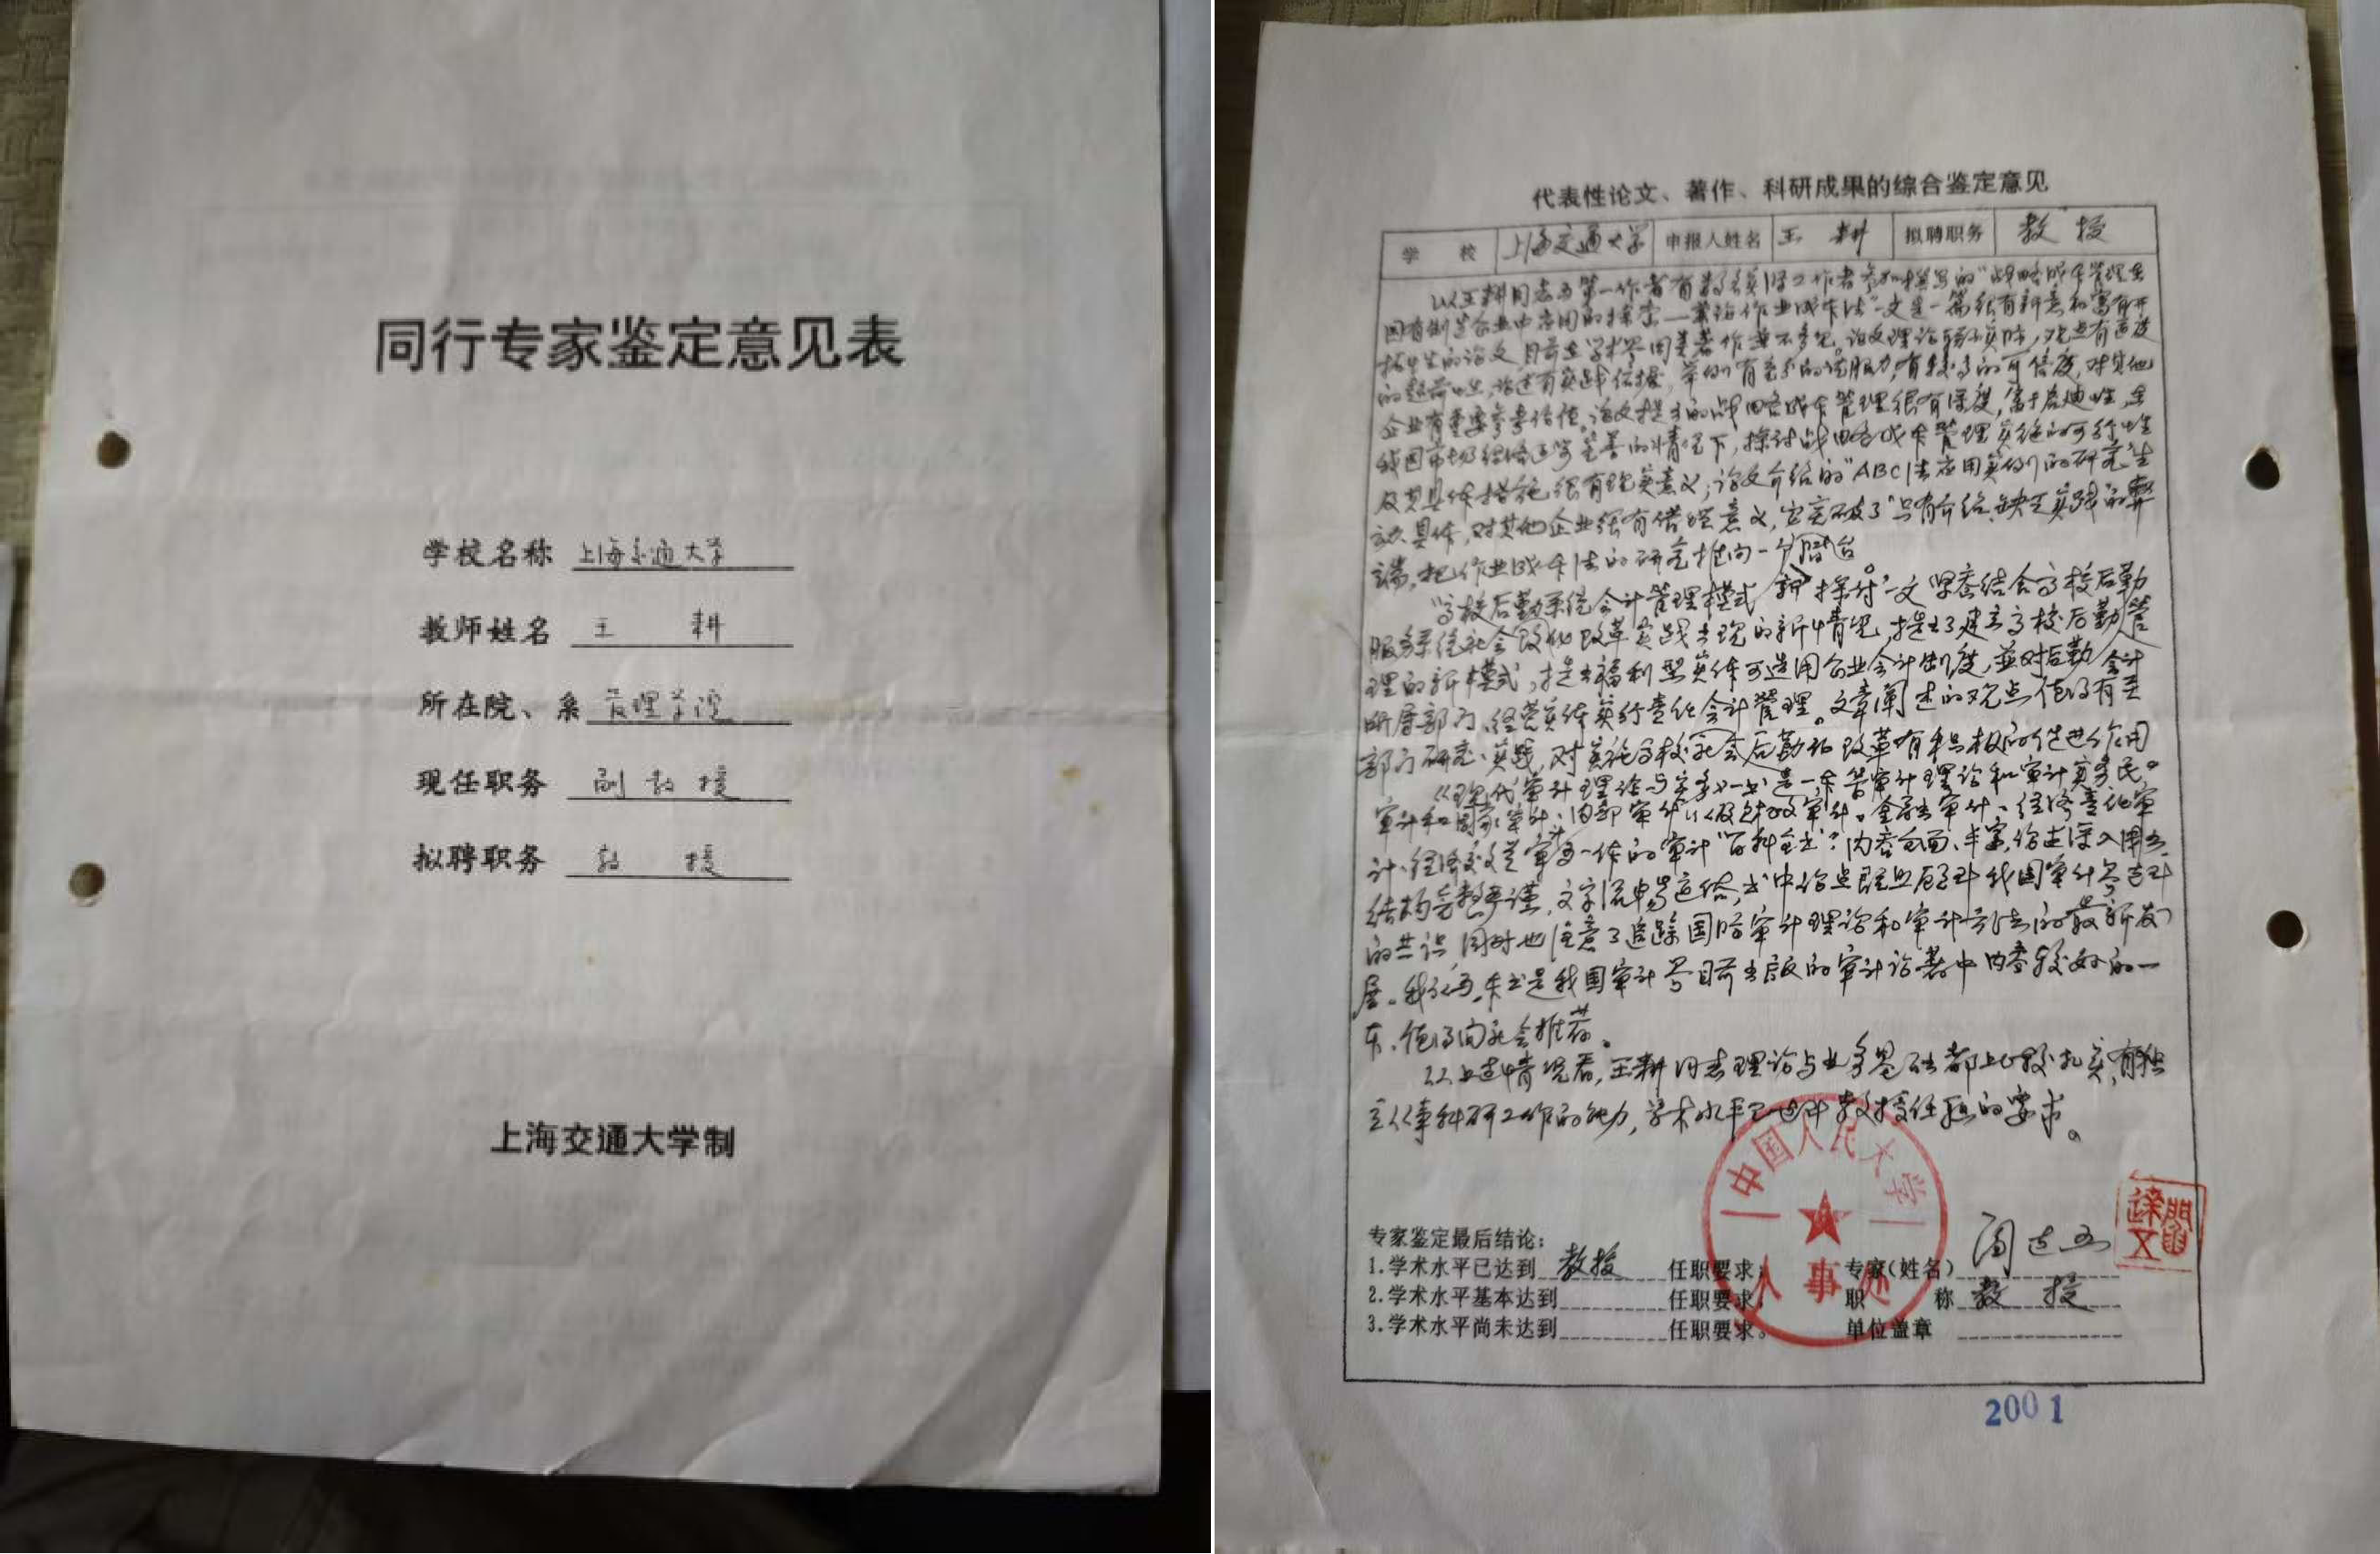 同行专家鉴定意见表
学校名称 上海交通大学
教师姓名 王 耕
所在院、系 管理学院
现任职务 副教授
拟聘职务 教 授
上海交通大学制
代表性论文、著作、科研成果的综合鉴定意见
学 校 上海交通大学 申报人姓名 王 耕 拟聘职务 教 授
以王耕同志为第一作者有数名实际工作者参加撰写的“战略成本管理在
国有制造企业中应用的探索——兼论作业成本法”一文是一篇很有新意和富有开
拓性的论文,目前在学术界同类著作并不多见。该文理论联系实际,观点有适度
的超前性,论述有实践依据,举例有充分的说服力,有较高的可信度,对其他
企业有重要参考价值。该文提出的战略成本管理很有深度,富于启迪性,在
我国市场经济逐步完善的情况下,探讨战略成本管理实施的可行性
及其具体措施,很有现实意义;论文介绍的“ABC法应用实例”的研究生
动具体,对其他企业很有借鉴意义,它突破了“只有介绍、缺乏实践”的弊
端,把作业成本法的研究推向一个新台阶。
“高校后勤系统会计管理模式探讨”一文紧密结合高校后勤
服务系统社会化改革实践出现的新情况,提出了建立高校后勤管
理的新模式,提出福利型实体可选用企业会计制度,並对后勤会计
所属部门、经营实体实行责任会计管理。文章阐述的观点值得有关
部门研究、实践,对实施高校社会后勤化改革有积极的促进作用。
《现代审计理论与实务》一书是一本集审计理论和审计实务民
审计和国家审计、内部审计以及财政审计、金融审计、经济责任审
计、经济效益审计于一体的审计“百科全书”。内容全面、丰富,论述深入
结构完整严谨,文字流畅易通俗,书中论点既照顾到我国审计界达到
的共识,同时也注意了追踪国际审计理论和审计方法的最新发
展。我认为,本书是我国审计界目前出版的审计论著中内容较好的一
本,值得向社会推荐。
从上述情况看,王耕同志理论与业务基础都比较扎实,有独
立从事科研工作的能力,学术水平已达到教授任职的要求。
专家鉴定最后结论:
1.学术水平已达到 教授 任职要求; 专家(姓名) 阎达五
2.学术水平基本达到 任职要求; 职 称 教 授
3.学术水平尚未达到 任职要求。 单位盖章
中国人民大学
人事处
阎达五
2001